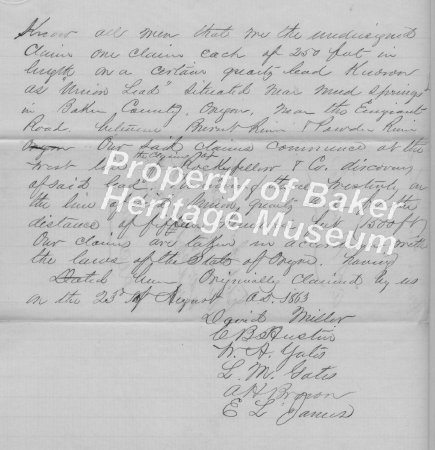 Know all men that we the undersigned
claim one claim each of 250 feet in
length on a certain quartz lead known
as "Union Lead" situated near mud springs
in Baker County, Oregon, near the Emigrant
Road, between Burnt River & Powder River
Our said claims commence at the
west line of the claims of & Co. discovery
of said lead. running thence westerly on
the line of said Union quartz the
distance of fifteen hundred feet (1500 ft)
Our claims are taken in accordance with
the laws of the State of Oregon, having
Dated been Originally claimed by us
on the 23rd of August A.D. 1863
David Miller
C B Austin
W. A. Yates
L. M. Gates
A H Brown
E L James
Property of Baker
Heritage Museum